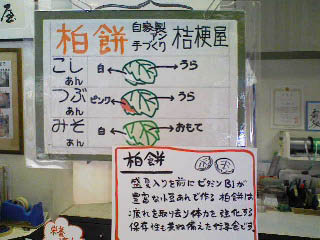 屋
柏餅 自家製アン手づくり 桔梗屋
こしあん 白 うら
つぶあん ピンク うら
みそあん 白 おもて
柏餅
盛夏入りを前にビタミンB1が
豊富な小豆あんで作る柏餅は
疲れを取去り体力を強化する
保存性も兼ね備えた行事食です